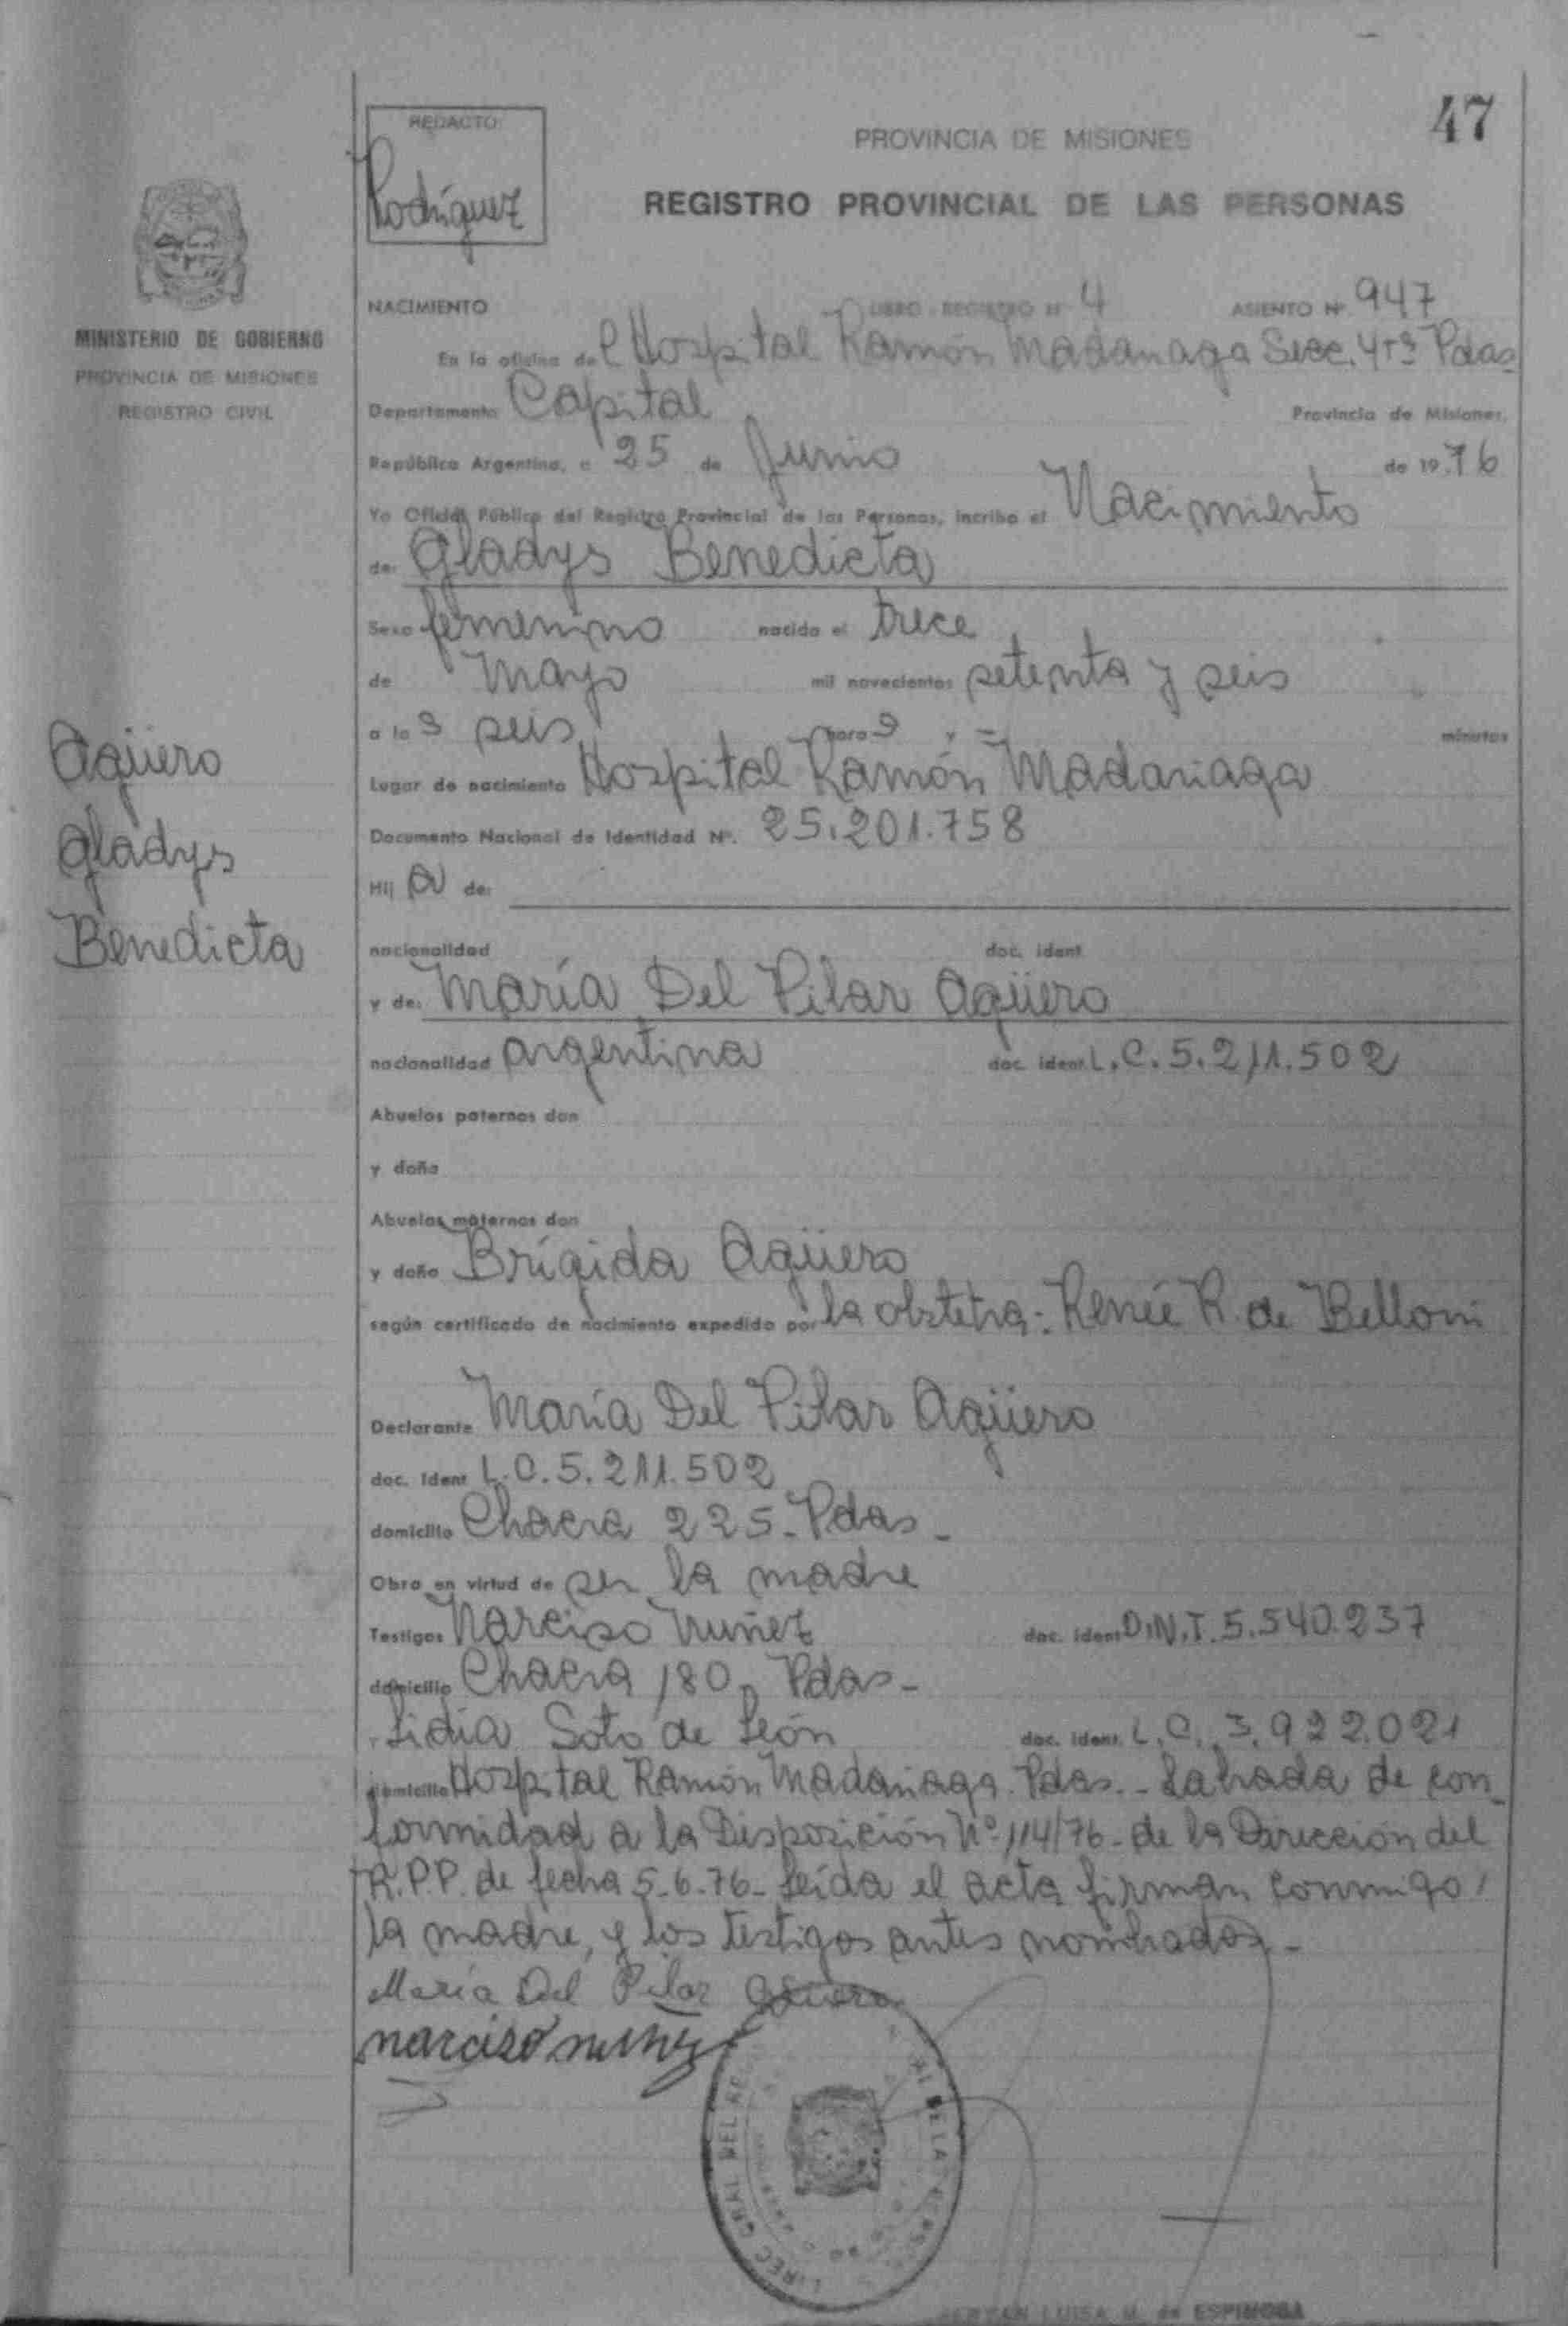 47
REDACTO:
Rodríguez
PROVINCIA DE MISIONES
REGISTRO PROVINCIAL DE LAS PERSONAS
MINISTERIO DE GOBIERNO
PROVINCIA DE MISIONES
REGISTRO CIVIL
NACIMIENTO LIBRO - REGISTRO Nº 4 ASIENTO Nº 947
En la oficina del Hospital Ramón Madariaga Secc. 4ta Pdas
Departamento Capital Provincia de Misiones,
República Argentina, a 25 de Junio de 1976
Yo Oficial Público del Registro Provincial de las Personas, inscribo el Nacimiento
de: Gladys Benedicta
Sexo femenino nacido el trece
de Mayo mil novecientos setenta y seis
a las seis horas y = minutos
Lugar de nacimiento Hospital Ramón Madariaga
Documento Nacional de Identidad Nº. 25.201.758
Hij a de:
nacionalidad doc. ident
y de: María Del Pilar Agüero
nacionalidad argentina doc. ident L.C. 5.211.502
Abuelos paternos don
y doña
Abuelos maternos don
y doña Brígida Agüero
según certificado de nacimiento expedido por la obstetra: Renée R. de Belloni
Declarante María Del Pilar Agüero
doc. Ident L.C. 5.211.502
domicilio Chacra 225- Pdas-
Obra en virtud de ser la madre
Testigos Narciso Nuñez doc. ident D.N.I. 5.540.237
domicilio Chacra 180- Pdas-
y Lidia Soto de León doc. ident. L.C. 3.922.021
domicilio Hospital Ramón Madariaga. Pdas.- Labrada de con-
formidad a la Disposición Nº 114/76- de la Dirección del
R.P.P. de fecha 5-6-76- Leída el acta firman conmigo
la madre, y los testigos antes nombrados-
María Del Pilar Agüero
narciso nuñez
Agüero
Gladys
Benedicta
DIREC. GRAL DEL RE DE LA
LUISA M. de ESPINOSA